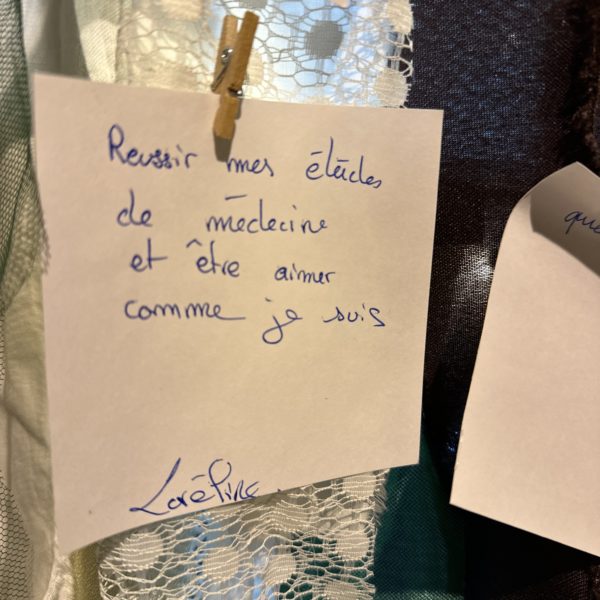 Reussir mes études
de médecine
et être aimer
comme je suis
que